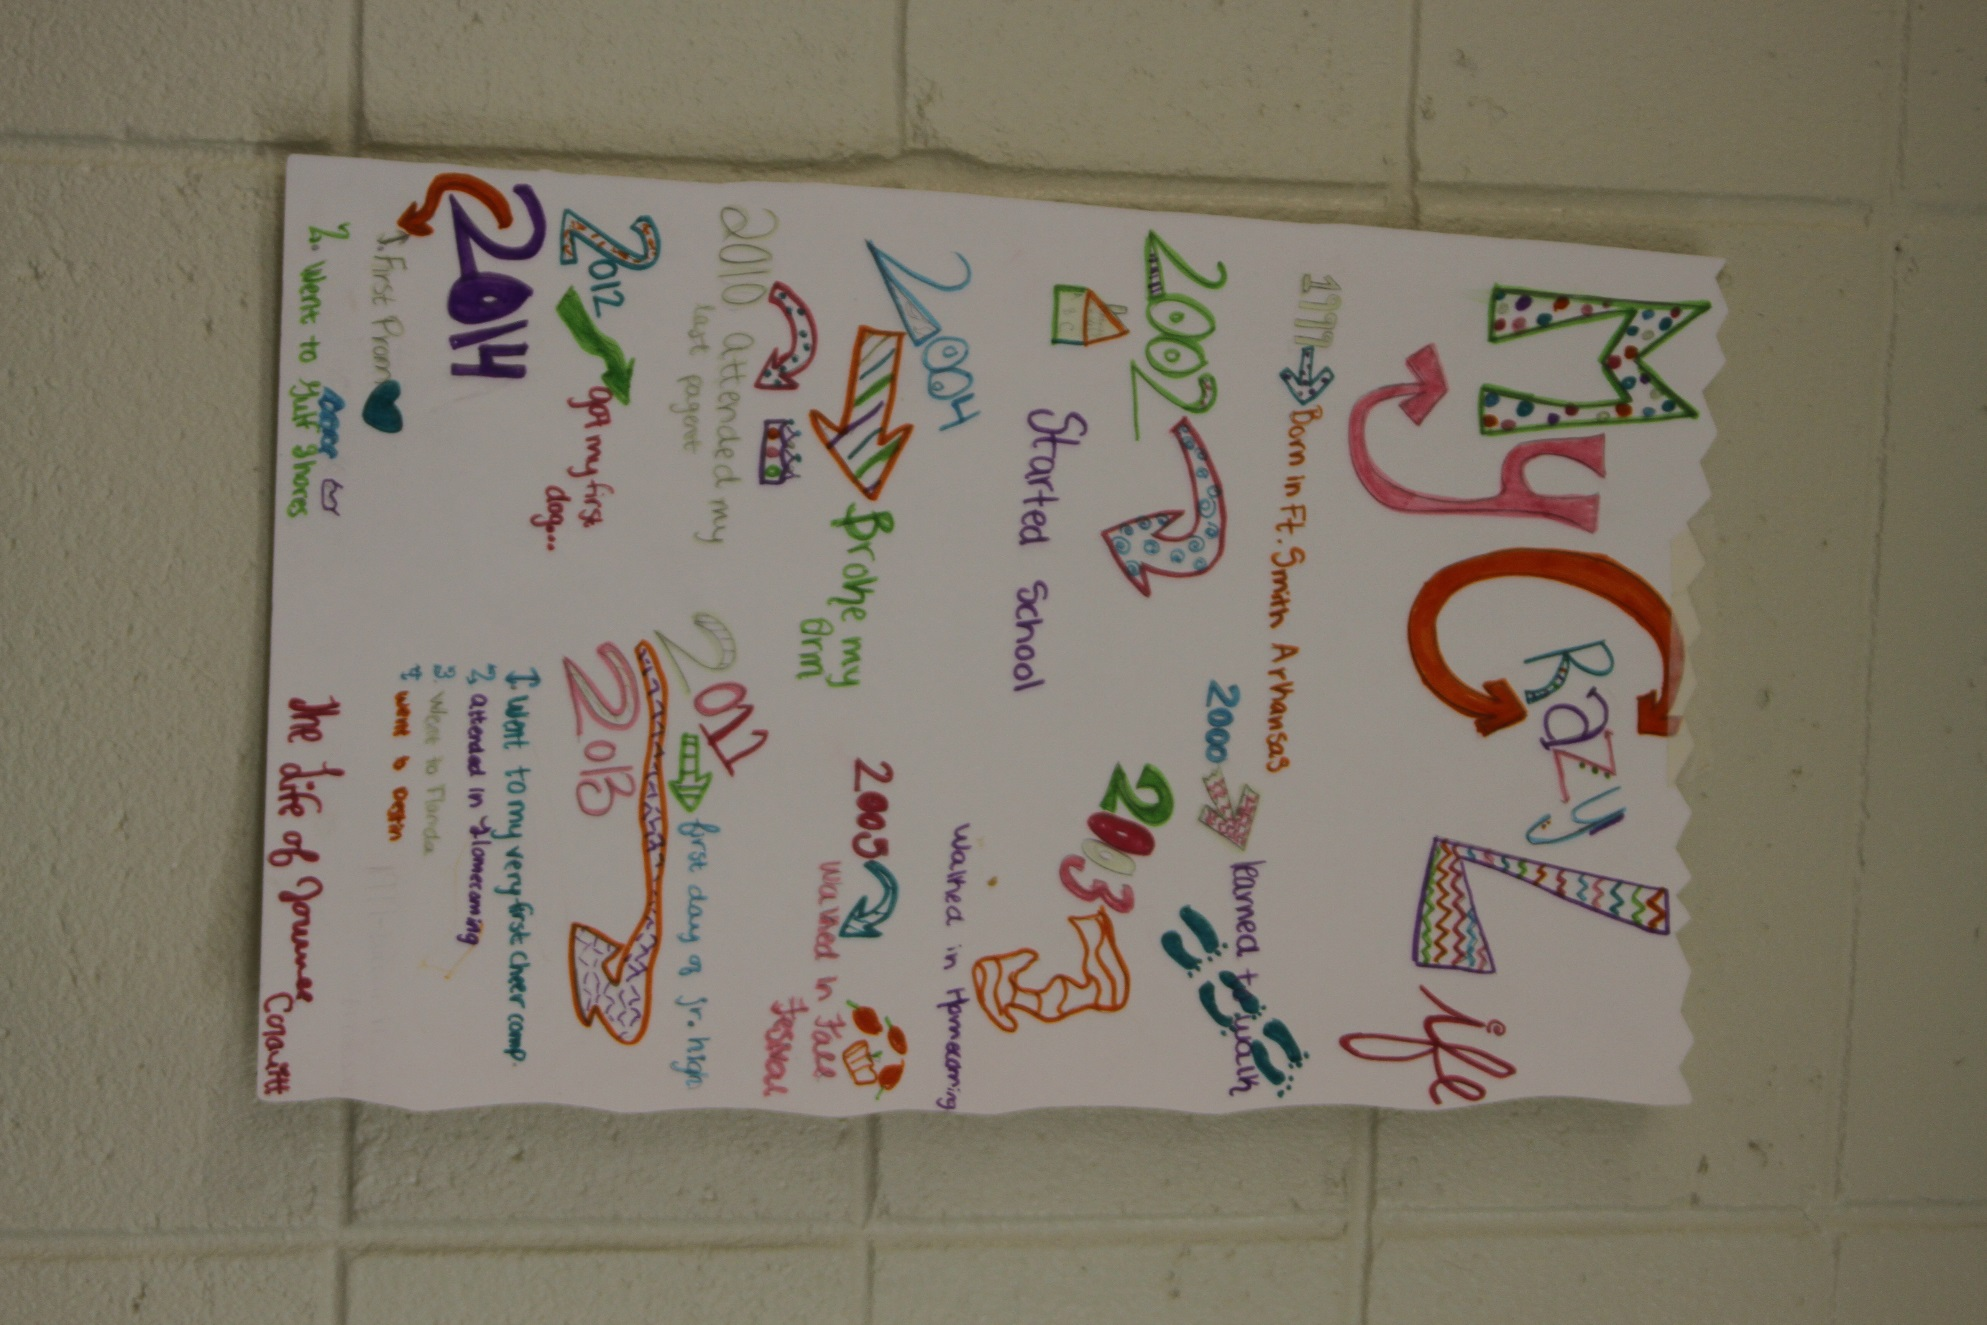 My Crazy Life
1999 Born in Ft. Smith Arkansas
2000 learned to walk
2002
Started School
2003
walked in Homecoming
2004 Broke my
Arm
2005
walked in Fall
Festival
2010 attended my
last pagent
2011 first day of Jr. high
2012 got my first
dog...
2013
1. Went to my very first cheer camp.
2. attended in Homecoming
3. Went to Florida
4. went to Destin
2014
1. First Prom
2. Went to gulf shores
The Life of